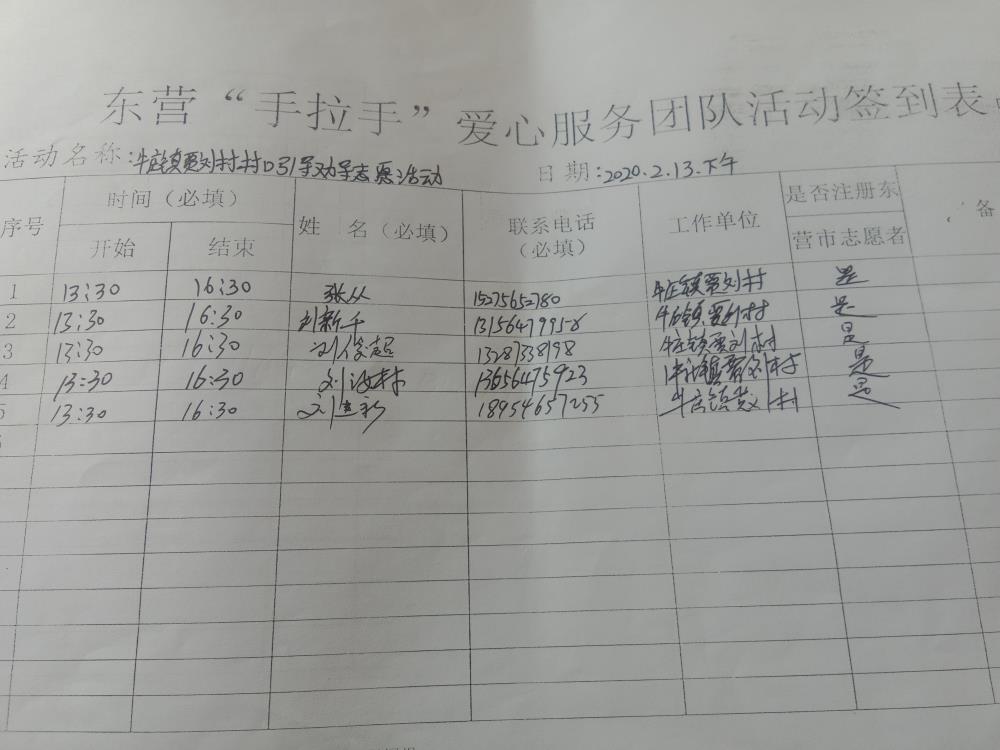 东营“手拉手”爱心服务团队活动签到表
活动名称:牛庄镇贾刘村村口引导劝导志愿活动 日期:2020.2.13.下午
序号 时间（必填） 姓 名（必填） 联系电话（必填） 工作单位 是否注册东营市志愿者 备
开始 结束
1 13:30 16:30 张从 15275652780 牛庄镇贾刘村 是
2 13:30 16:30 刘新千 13156479958 牛庄镇贾刘村 是
3 13:30 16:30 刘俊超 13287338198 牛庄镇贾刘村 是
4 13:30 16:30 刘 村 13656475923 牛庄镇贾刘村 是
5 13:30 16:30 刘 18954657255 牛庄镇贾刘村 是